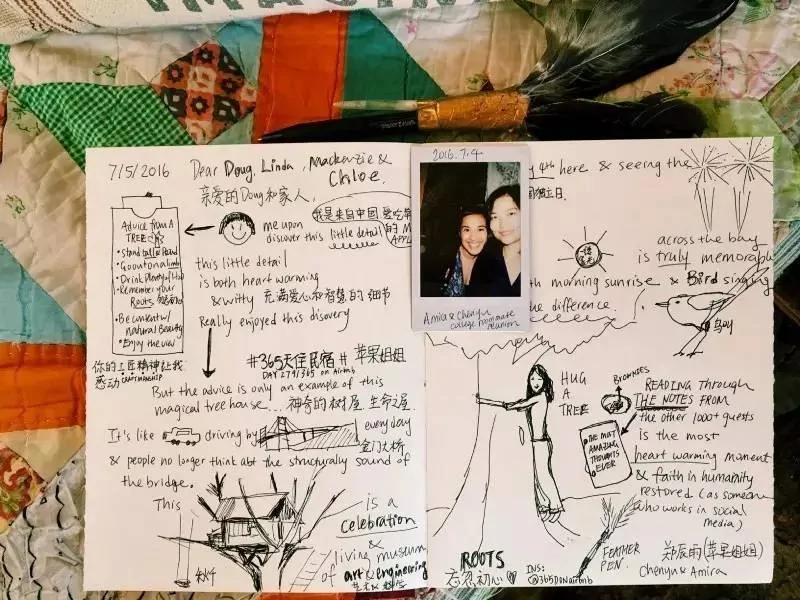 IMAGINE
7/5/2016
Dear Doug, Linda, Mackenzie &
Chloe,
亲爱的Doug和家人,
Advice from A
TREE
• Stand tall & Proud
• Go out on a limb
• Remember your
Roots
• Be content w/
natural Beauty
• Enjoy the view
me upon
discover this little detail
我是来自中国 爱吃苹
this little detail
is both heart warming
& witty 充满爱心和智慧的细节
Really enjoyed this disovery
你的工匠精神让我
感动
#365天住民宿# 苹果姐姐
DAY 279/365 on Airbnb
But the advice is only an example of this
magical tree house... 神奇的树屋 生命之屋.
It's like
driving by
everyday
金门大桥
& people no longer think abt the structurally sound of
the bridge.
This
is a
celebration
&
living museum
of art & engineering
秋千
2016.7.4
Amira & Chenyu
college roommate
reunion
4th here & seeing the
国独立日.
across the bay
is truly memorable
morning sunrise & Bird singing
the difference.
HUG
A
TREE
BROWNIES
THE MOST
AMAZING
THOUGHTS
EVER
READING through
THE NOTES FROM
the other 1000+ guests
is the most
heart warming moment
& faith in humanity
restored (as someone
who works in social
media)
FEATHER
PEN.
ROOTS
勿忘初心
INS:
@365DONairbnb
郑辰雨(苹果姐姐)
Chenyu & Amira